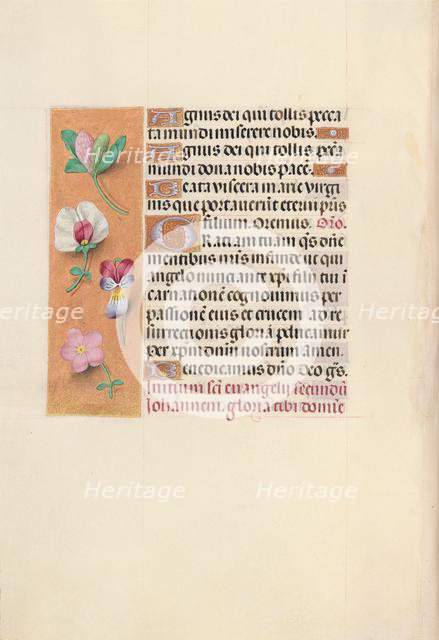 Agnus dei qui tollis pecca
ta mundi miserere nobis.
Agnus dei qui tollis pecca
mundi dona nobis pace.
Beata viscera marie virgi
nis que portaverūt eterni pris
filium. Oremus. Oro.
Gratiam tuam qs dne
mentibus nris infunde ut qui
angelo nunciante xpi filii tui i
carnationē cognovimus per
passionē eius et crucem ad re
surrectionis gloriā perducamur
per xpm dnm nostrum amen.
Benedicamus dno Deo gs.
Initium sci euangelii secundū
Johannem. gloria tibi domine
Heritage
Heritage
Heritage
Heritage
Heritage
Heritage
Heritage
Heritage